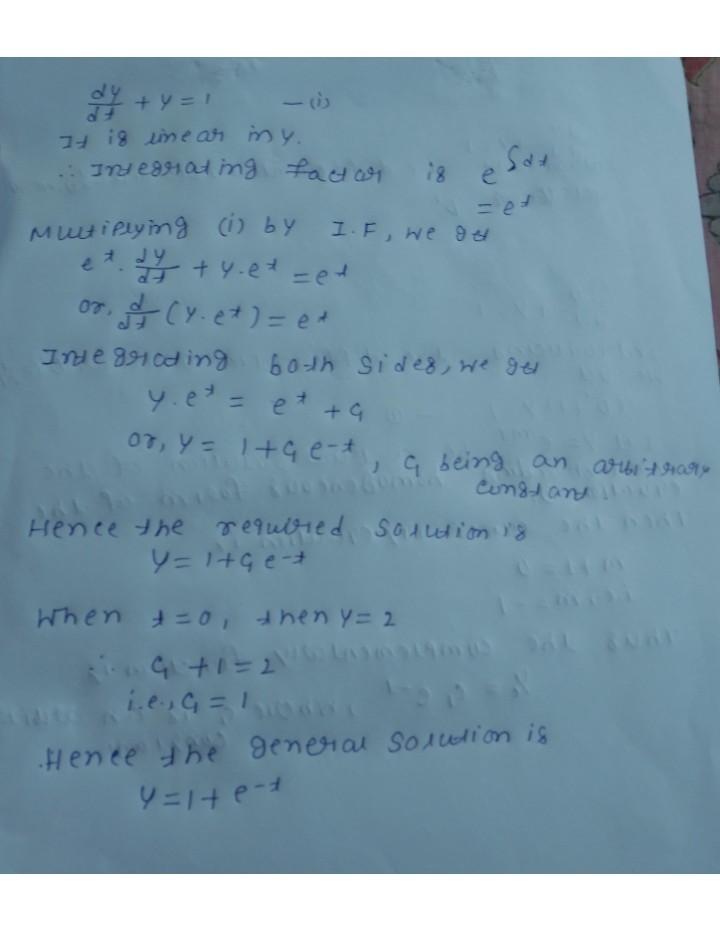 dy/dt + y = 1 — (i)
It is linear in y.
∴ Integrating factor is e^∫dt
= e^t
Multiplying (i) by I.F, we get
e^t. dy/dt + y.e^t = e^t
or, d/dt (y.e^t) = e^t
Integrating both sides, we get
y.e^t = e^t + c₁
or, y = 1 + c₁ e^-t, c₁ being an arbitrary
constant.
Hence the required solution is
y = 1 + c₁ e^-t
When t = 0, then y = 2
∴ c₁ + 1 = 2
i.e., c₁ = 1
Hence the general solution is
y = 1 + e^-t